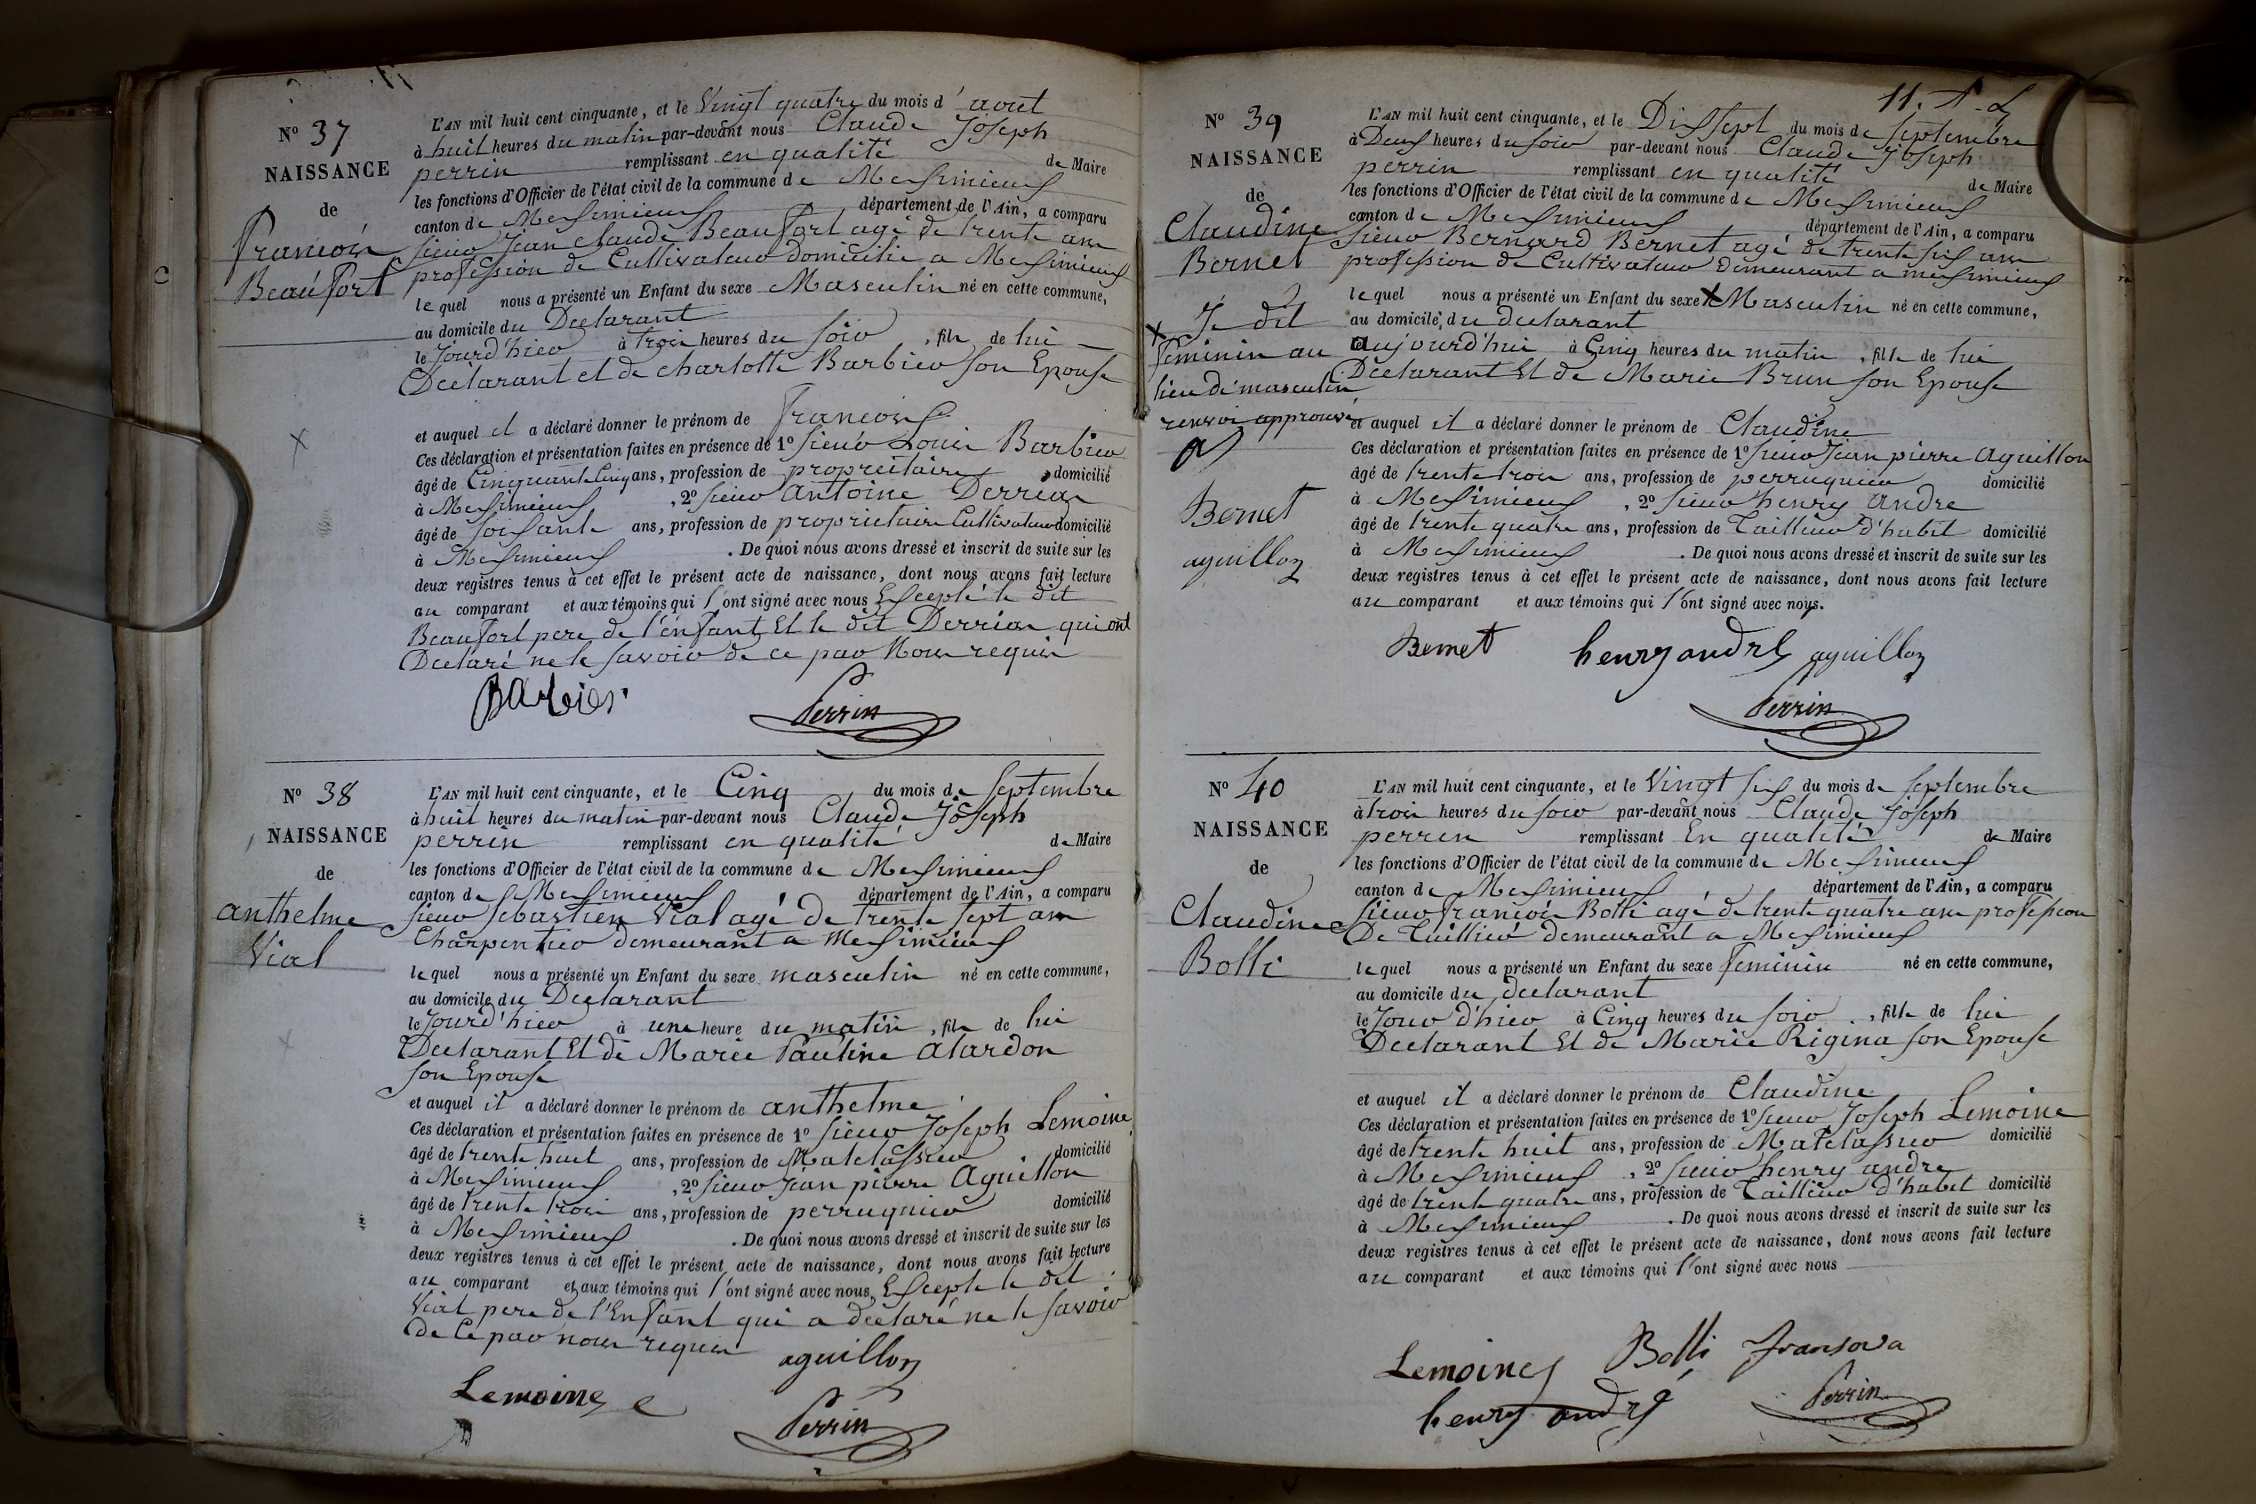 N° 37
NAISSANCE
de
Francois
Beaufort
L'AN mil huit cent cinquante, et le Vingt quatre du mois d'aout
à huit heures du matin par-devant nous Claude Joseph
perrin remplissant en qualité de Maire
les fonctions d'Officier de l'état civil de la commune de Meximieux
canton de Meximieux département de l'Ain, a comparu
sieur Jean Claude Beaufort agé de trente ans
profession de Cultivateur domicilié a Meximieux
le quel nous a présenté un Enfant du sexe Masculin né en cette commune,
au domicile du Declarant
le Jour d'hier à trois heures du soir, fils de lui
Declarant et de charlotte Barbier son Epouse
et auquel il a déclaré donner le prénom de Francois
Ces déclaration et présentation faites en présence de 1° sieur Louis Barbier
âgé de Cinquante Cinq ans, profession de propriétaire domicilié
à Meximieux, 2° sieur antoine Derrias
âgé de soixante ans, profession de proprietaire Cultivateur domicilié
à Meximieux. De quoi nous avons dressé et inscrit de suite sur les
deux registres tenus à cet effet le présent acte de naissance, dont nous avons fait lecture
au comparant et aux témoins qui l'ont signé avec nous Excepté le dit
Beaufort pere de l'enfant Et le dit Derrias qui ont
Declaré ne le savoir de ce par Nous requis
Barbier
Perrin
N° 38
NAISSANCE
de
anthelme
Vial
L'AN mil huit cent cinquante, et le Cinq du mois de septembre
à huit heures du matin par-devant nous Claude Joseph
perrin remplissant en qualité de Maire
les fonctions d'Officier de l'état civil de la commune de Meximieux
canton de Meximieux département de l'Ain, a comparu
sieur Sebastien Vial agé de trente sept ans
Charpentier demeurant a Meximieux
le quel nous a présenté un Enfant du sexe masculin né en cette commune,
au domicile du Declarant
le Jour d'hier à une heure du matin, fils de lui
Declarant Et de Marie Pauline alardon
son Epouse
et auquel il a déclaré donner le prénom de anthelme
Ces déclaration et présentation faites en présence de 1° sieur Joseph Lemoine
âgé de trente huit ans, profession de Matelassier domicilié
à Meximieux, 2° sieur Jean pierre Aguillon
âgé de trente trois ans, profession de perruquier domicilié
à Meximieux. De quoi nous avons dressé et inscrit de suite sur les
deux registres tenus à cet effet le présent acte de naissance, dont nous avons fait lecture
au comparant et aux témoins qui l'ont signé avec nous Excepté le dit
Vial pere de l'Enfant qui a déclaré ne le savoir
de Ce par nous requis
aguillon
Lemoine
Perrin
11.
N° 39
NAISSANCE
de
Claudine
Bernet
X Je dit
feminin au
lieu de masculin
renvoi approuvé
Bernet
aguillon
L'AN mil huit cent cinquante, et le Dix sept du mois de septembre
à Deux heures du soir par-devant nous Claude Joseph
perrin remplissant en qualité de Maire
les fonctions d'Officier de l'état civil de la commune de Meximieux
canton de Meximieux département de l'Ain, a comparu
sieur Bernard Bernet agé de trente six ans
profession de Cultivateur demeurant a meximieux
le quel nous a présenté un Enfant du sexe X Masculin né en cette commune,
au domicile du declarant
aujourd'hui à Cinq heures du matin, fille de lui
Declarant Et de Marie Brun son Epouse
et auquel il a déclaré donner le prénom de Claudine
Ces déclaration et présentation faites en présence de 1° sieur Jean pierre aguillon
âgé de trente trois ans, profession de perruquier domicilié
à Meximieux, 2° sieur henry andre
âgé de trente quatre ans, profession de Tailleur d'habit domicilié
à Meximieux. De quoi nous avons dressé et inscrit de suite sur les
deux registres tenus à cet effet le présent acte de naissance, dont nous avons fait lecture
au comparant et aux témoins qui l'ont signé avec nous.
Bernet henry andre aguillon
Perrin
N° 40
NAISSANCE
de
Claudine
Bolli
L'AN mil huit cent cinquante, et le Vingt six du mois de septembre
à trois heures du soir par-devant nous Claude Joseph
perrin remplissant En qualité de Maire
les fonctions d'Officier de l'état civil de la commune de Meximieux
canton de Meximieux département de l'Ain, a comparu
sieur francois Bolli agé de trente quatre ans profession
De Tuillier demeurant a Meximieux
le quel nous a présenté un Enfant du sexe feminin né en cette commune,
au domicile du declarant
le Jour d'hier à Cinq heures du soir, fille de lui
Declarant Et de Marie Rigina son Epouse
et auquel il a déclaré donner le prénom de Claudine
Ces déclaration et présentation faites en présence de 1° sieur Joseph Lemoine
âgé de trente huit ans, profession de Matelassier domicilié
à Meximieux, 2° sieur henry andre
âgé de trente quatre ans, profession de Tailleur d'habit domicilié
à Meximieux. De quoi nous avons dressé et inscrit de suite sur les
deux registres tenus à cet effet le présent acte de naissance, dont nous avons fait lecture
au comparant et aux témoins qui l'ont signé avec nous
Lemoine Bolli fransova
henry andré Perrin